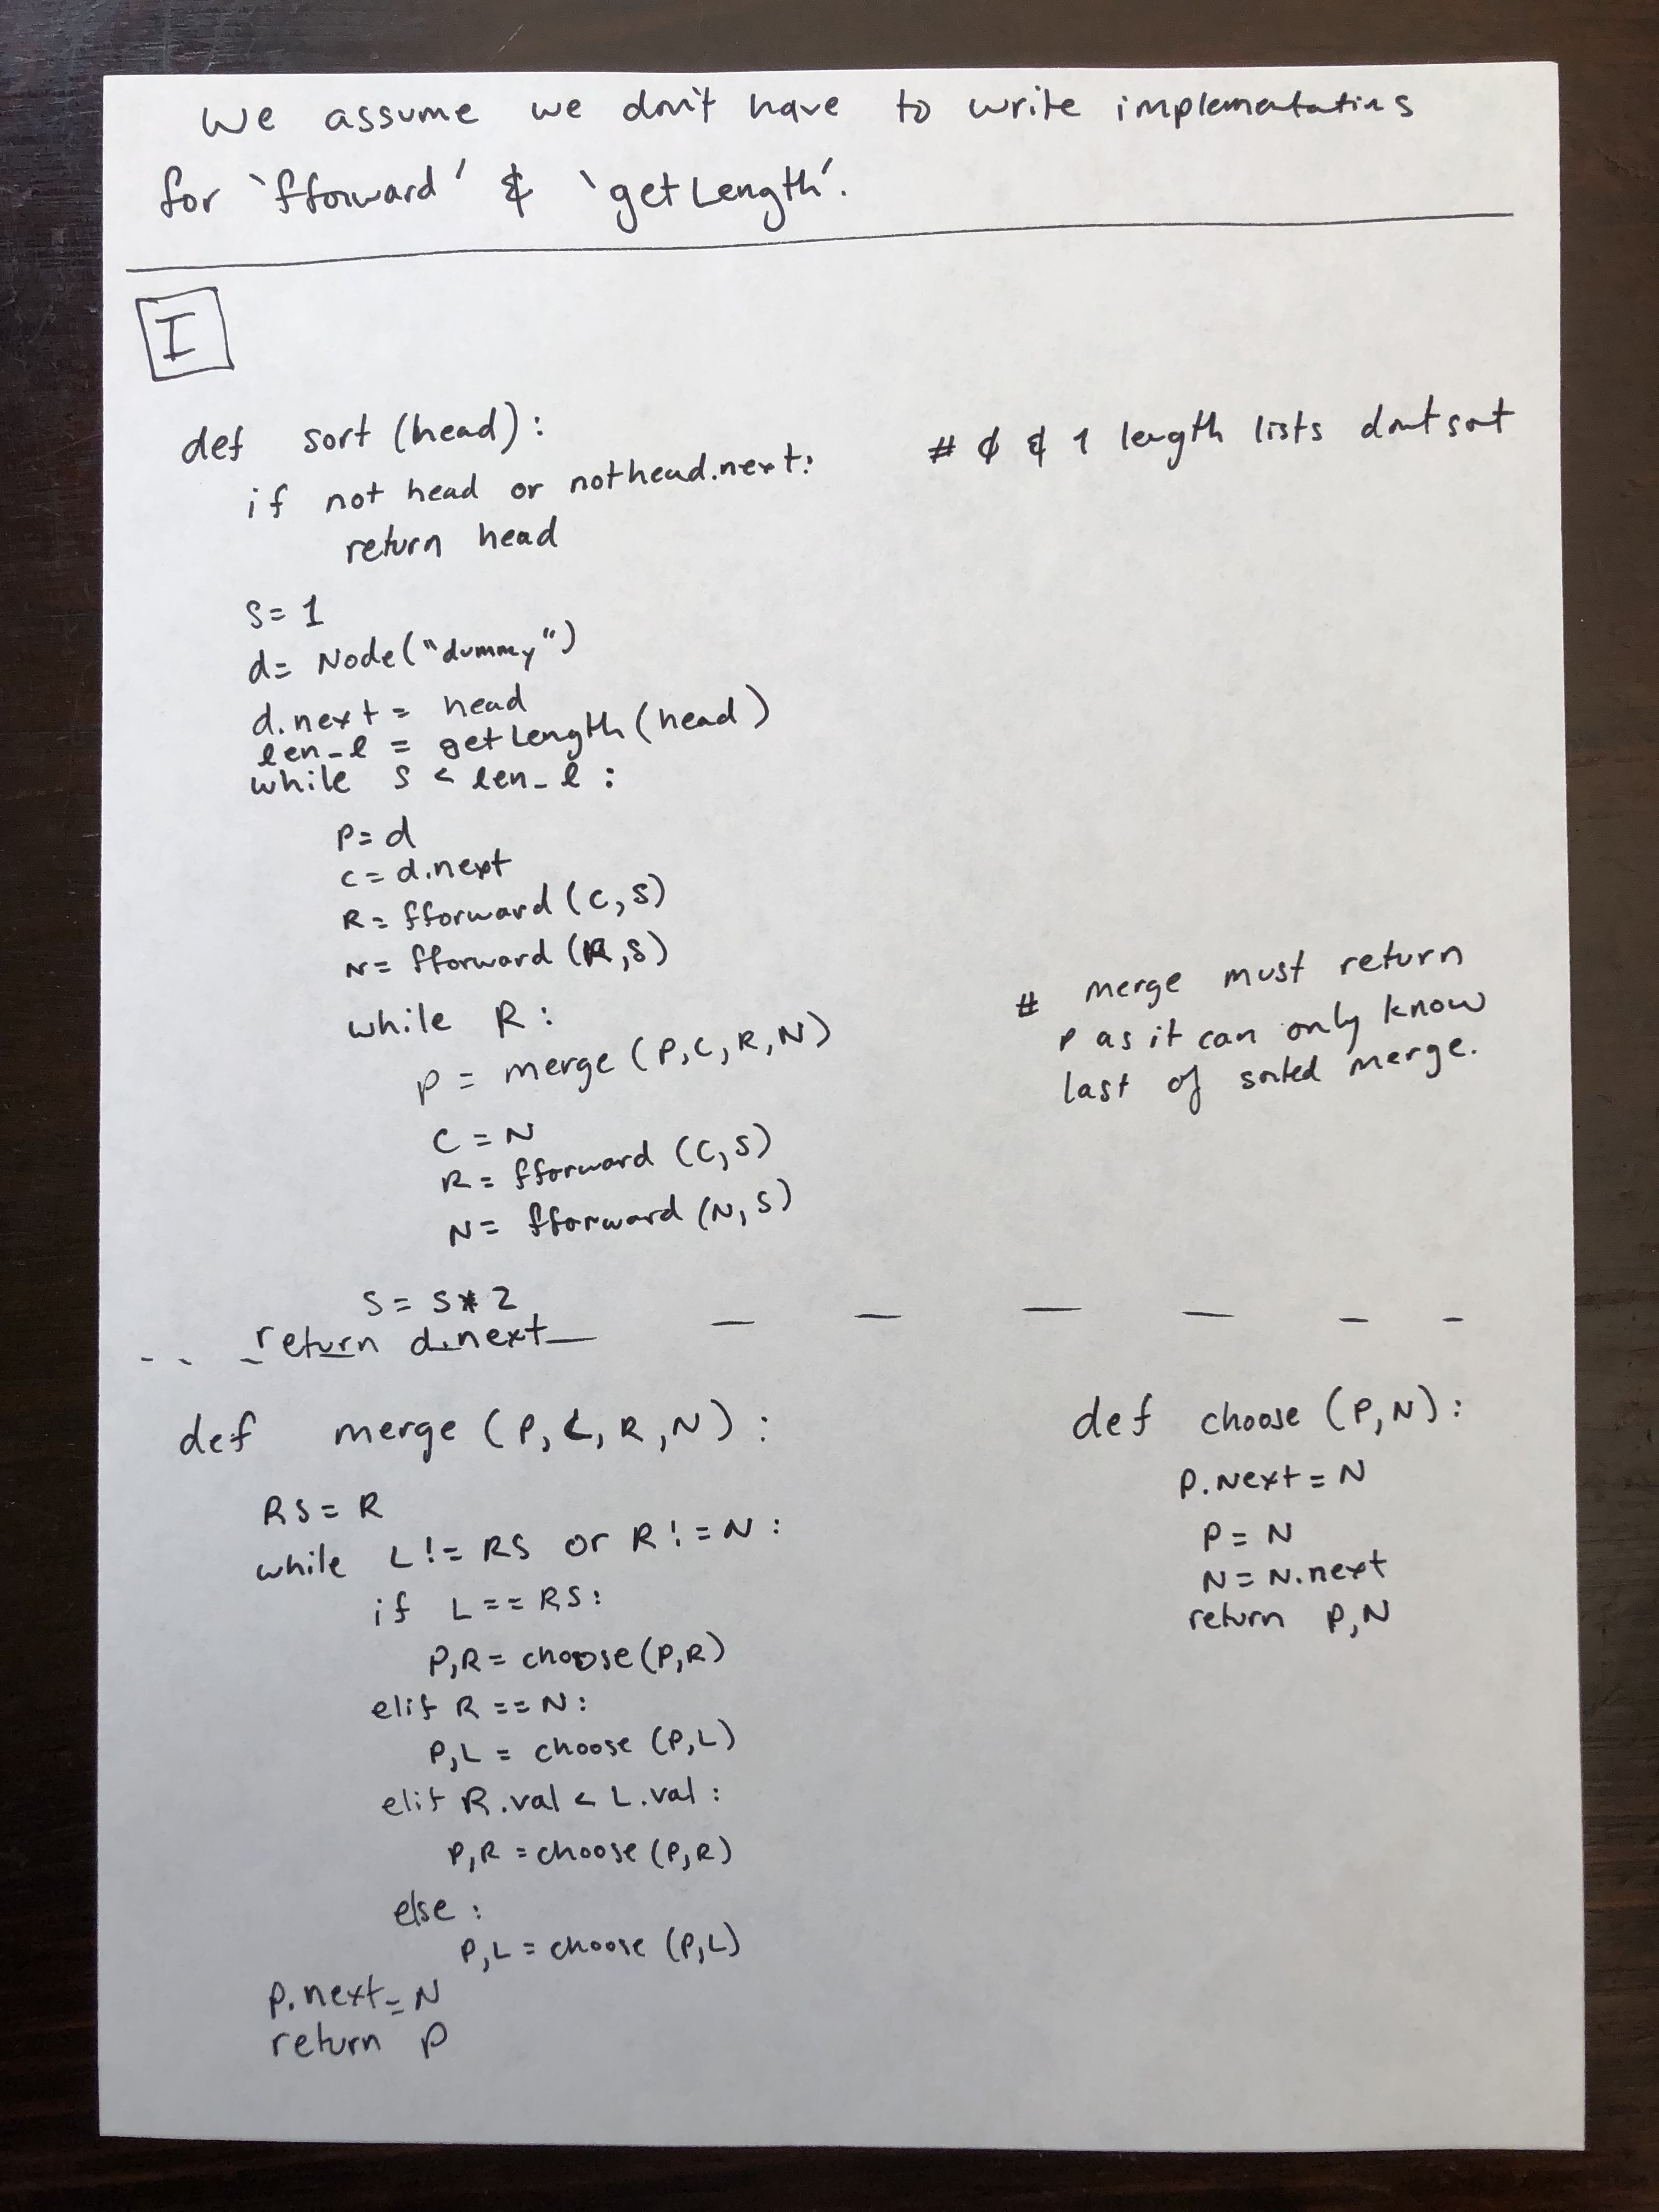 We assume we don't have to write implementatins
for `fforward' & `getLength'.
I
def sort (head): # 0 & 1 length lists dont sort
if not head or not head.next:
return head
S = 1
d = Node("dummy")
d.next = head
len_l = getLength(head)
while S < len_l :
P = d
C = d.next
R = fforward (C, S)
N = fforward (R, S)
while R :
P = merge (P, C, R, N)
# merge must return
P as it can only know
last of sorted merge.
C = N
R = fforward (C, S)
N = fforward (N, S)
S = S * 2
return d.next
def merge (P, L, R, N) :
RS = R
while L != RS or R != N :
if L == RS :
P, R = choose (P, R)
elif R == N :
P, L = choose (P, L)
elif R.val < L.val :
P, R = choose (P, R)
else :
P, L = choose (P, L)
P.next = N
return P
def choose (P, N) :
P.next = N
P = N
N = N.next
return P, N